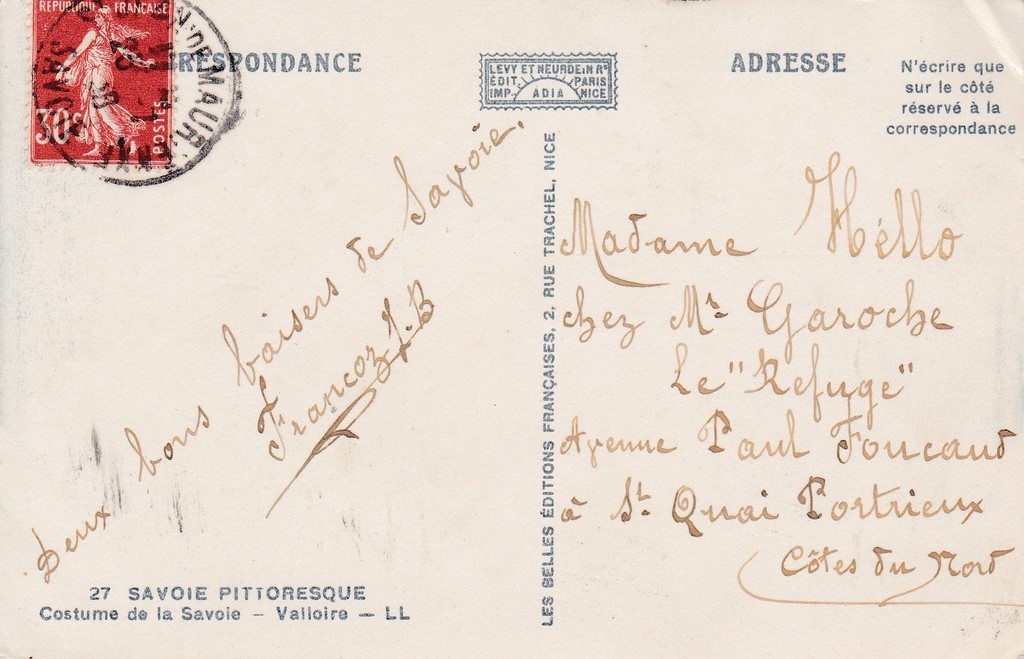 RÉPUBLIQUE FRANÇAISE
30c
POSTES
SAVOIE
CORRESPONDANCE
LEVY ET NEURDEIN Rs
ÉDIT. PARIS
IMP. ADIA NICE
ADRESSE
N'écrire que
sur le côté
réservé à la
correspondance
Deux bons baisers de Savoie.
Francoz J.B
27 SAVOIE PITTORESQUE
Costume de la Savoie – Valloire – LL
LES BELLES ÉDITIONS FRANÇAISES, 2, RUE TRACHEL, NICE
Madame Héllo
chez Mr Garoche
Le "Refuge"
Avenue Paul Foucaud
à St. Quai Portrieux
Côtes du Nord